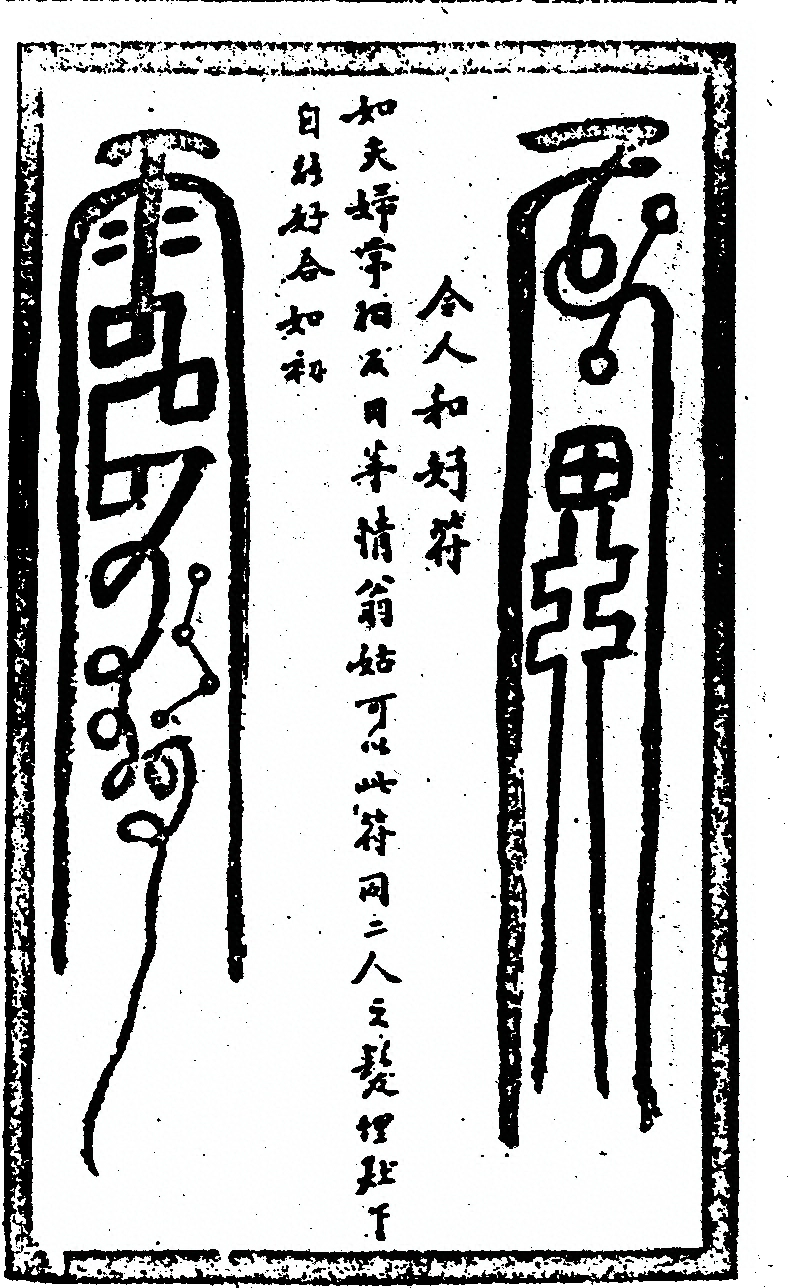 令人和好符
如夫婦常相反目等情翁姑可以此符同二人之髮埋下
自好合如初